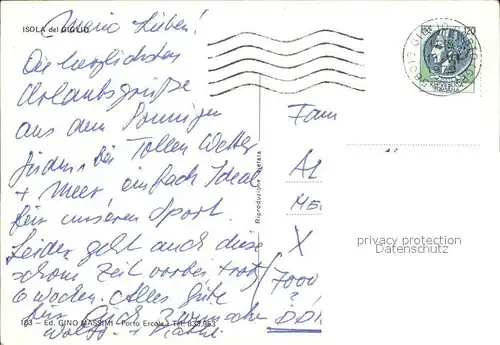 ISOLA del GIGLIO
Meine Lieben!
Die herzlichsten
Urlaubsgrüße
aus dem Sonnigen
Süden. Bei Tollem Wetter
+ Meer einfach Ideal
für unseren Sport.
Leider geht auch diese
schöne Zeit vorbei trotz
6 Wochen. Alles Gute
für Euch wünschen
Wolfg. +
103 — Ed. GINO MASSIMI - Porto Ercole - Tel. 833.953
Riproduzione vietata
120
Fam
Al
ME
X
(7000
?
DD
privacy protection
datenschutz